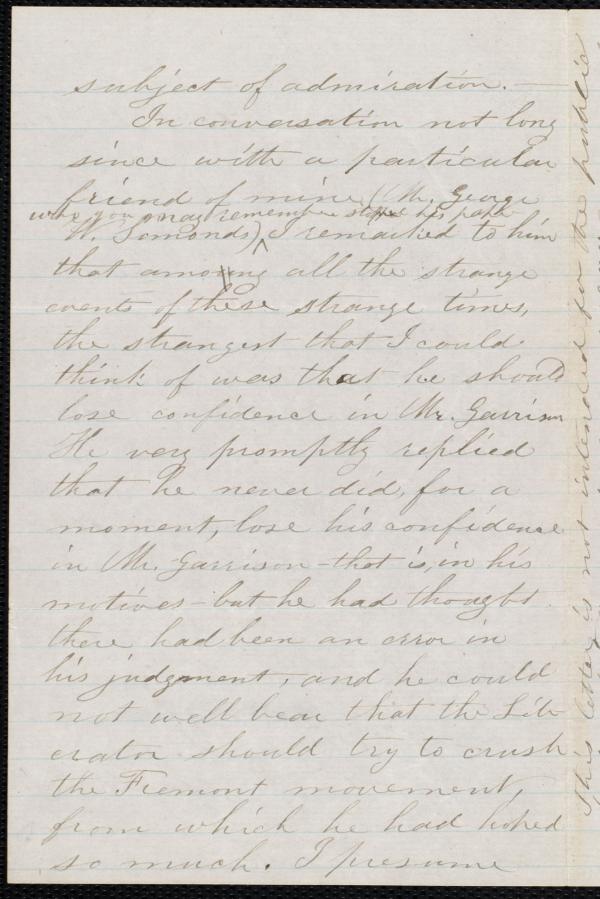 subject of admiration. —
In conversation not long
since with a particular
friend of mine, (Mr. George
who you may remember his paper
W. Simonds) ^ I remarked to him
that among all the strange
events of these strange times,
the strangest that I could
think of was that he should
lose confidence in Mr. Garrison
He very promptly replied
that he never did, for a
moment, lose his confidence
in Mr. Garrison—that is, in his
motives—but he had thought
there had been an error in
his judgment, and he could
not well bear that the Lib-
erator should try to crush
the Fremont movement,
from which he had hoped
so much. I presume
This letter is not intended for the public